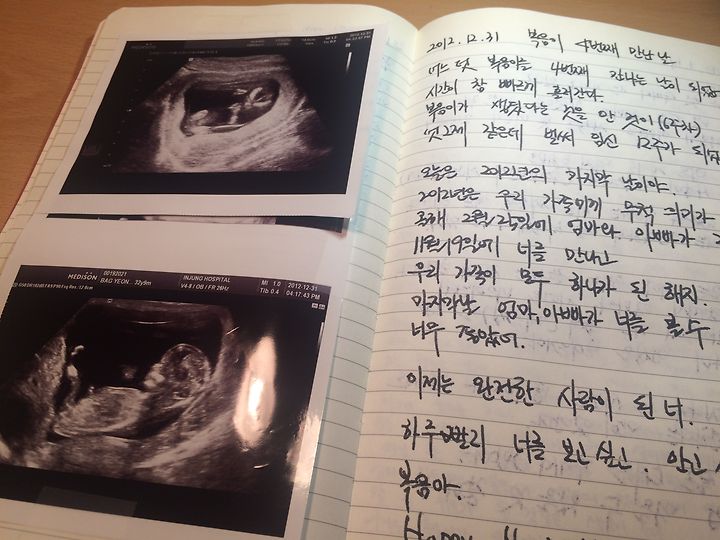 MEDISON
00192021
BAG YEON
32y9m
INJUNG HOSPITAL
V4-8 / OB / FR 26Hz
MI 1.0
TIb 0.4
2012-12-31
04:17:43 PM
2012.12.31 복음이 4번째 만난 날
어느 덧 복음이를 4번째 만나는 날이
시간이 참 빠르게 흘러간다.
복음이가 생겼다는 것을 안 것이 (6주차)
엊그제 같은데 벌써 임신 12주가
오늘은 2012년의 마지막 날이야.
2012년은 우리 가족에게 무척 의미가
2월 엄마와 아빠가
11월 19일에 너를 만나고
우리 가족이 모두 하나가 된 해지.
마지막날 엄마, 아빠가 너를 볼 수
너무
이제는 완전한 사람이 된 너.
하루빨리 너를 보고 싶고. 안고
복음아.